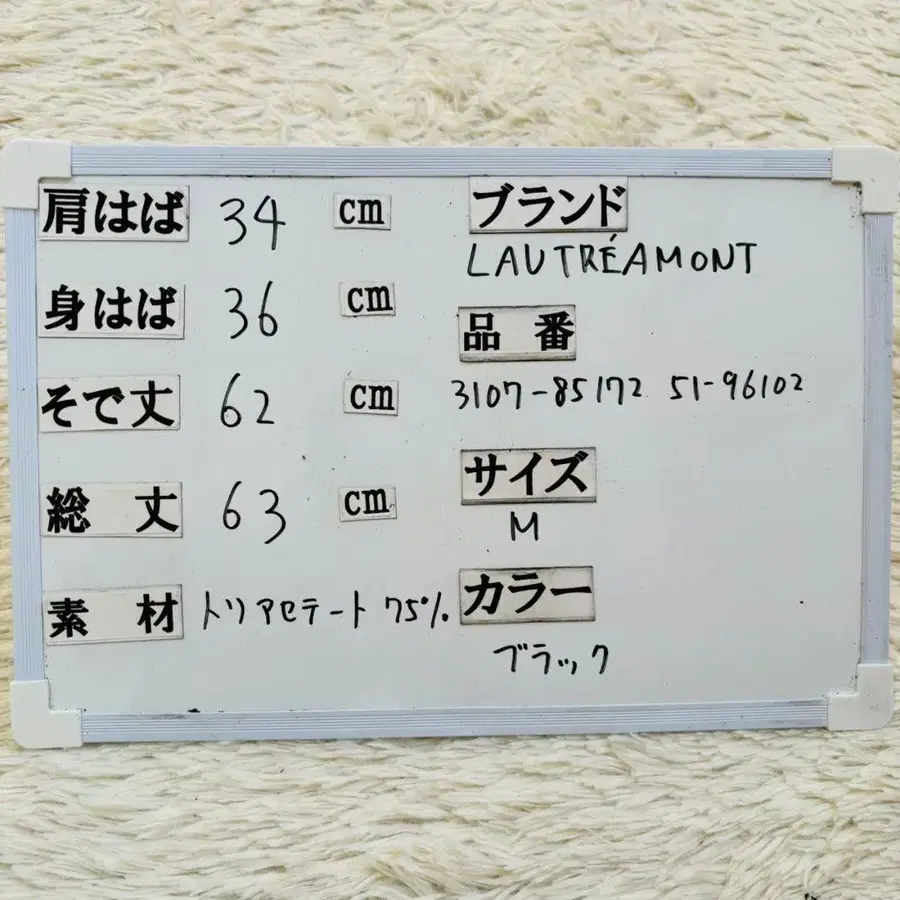 肩はば 34 cm
身はば 36 cm
そで丈 62 cm
総 丈 63 cm
素 材 トリアセテート 75%
ブランド
LAUTRÉAMONT
品 番
3107-85172 51-96102
サイズ
M
カラー
ブラック